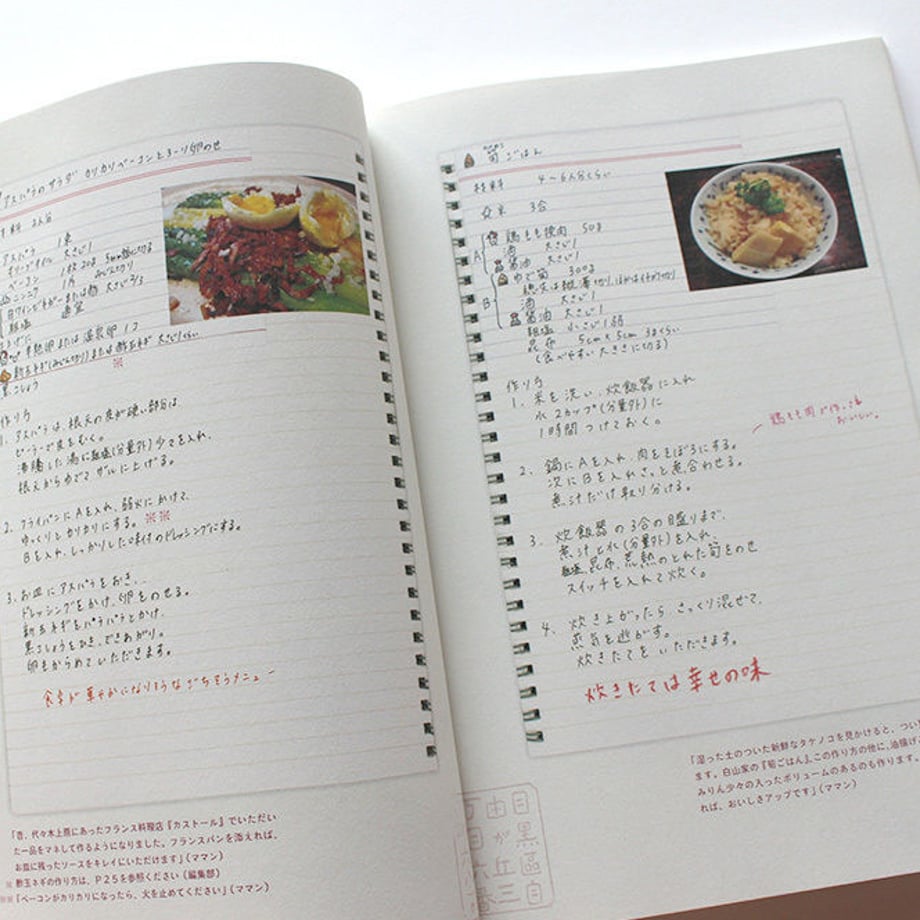 アスパラのサラダ カリカリベーコンとろーり卵のせ
材料 2人分
アスパラ 1束
オリーブオイル 大さじ1
ベーコン
ニンニク 1片 みじん切り
白ワインビネガーまたは酢 大さじ2/3
粗塩 適宜
半熟卵または温泉卵 1コ
新玉ネギ(みじん切り)または酢玉ネギ 大さじ1くらい
※
黒こしょう
作り方
1. アスパラは、根元の皮が硬い部分は、
ピーラーで皮をむく。
沸騰した湯に粗塩(分量外)少々を入れ、
根元からゆでて ザルに上げる。
2. フライパンにAを入れ、弱火にかけて、
ゆっくりとカリカリにする。※※
Bを入れ、しっかりした味付のドレッシングにする。
3. お皿にアスパラをおき、
ドレッシングをかけ、卵をのせる。
新玉ネギをパラパラとかけ、
黒こしょうをひき、できあがり。
卵をからめていただきます。
食卓が華やかになりそうなごちそうメニュー
「昔、代々木上原にあったフランス料理店『カストール』でいただい
た一品をマネして作るようになりました。フランスパンを添えれば、
お皿に残ったソースをキレイにいただけます」(ママン)
※ 酢玉ネギの作り方は、P25を参照ください(編集部)
※※「ベーコンがカリカリになったら、火を止めてください」(ママン)
筍ごはん
材料 4~6人分くらい
お米 3合
A
鶏もも挽肉 50g
酒 大さじ1
醤油 大さじ1
B
ゆで筍 300g
穂先は縦薄切り、ほかはイチョウ切り
酒 大さじ1
醤油 大さじ1
粗塩 小さじ1弱
昆布 5cm×5cm 3まいくらい
(食べやすい大きさに切る)
作り方
1. 米を洗い、炊飯器に入れ
水2カップ(分量外)に
1時間つけておく。
鶏もも肉で作っても
おいしい。
2. 鍋にAを入れ、肉をそぼろにする。
次にBを入れさっと煮合わせる。
煮汁だけ取り分ける。
3. 炊飯器の3合の目盛りまで、
煮汁と水(分量外)を入れ、
粗塩、昆布、荒熱のとれた筍をのせ
スイッチを入れて炊く。
4. 炊き上がったら さっくり混ぜて、
蒸気を逃がす。
炊きたてをいただきます。
炊きたては幸せの味
「湿った土のついた新鮮なタケノコを見かけると、つい
ます。白山家の『筍ごはん』、この作り方の他に、油揚げ
みりん少々の入ったボリュームのあるのも作ります。
れば、おいしさアップです」(ママン)
目黒區自
由が丘三